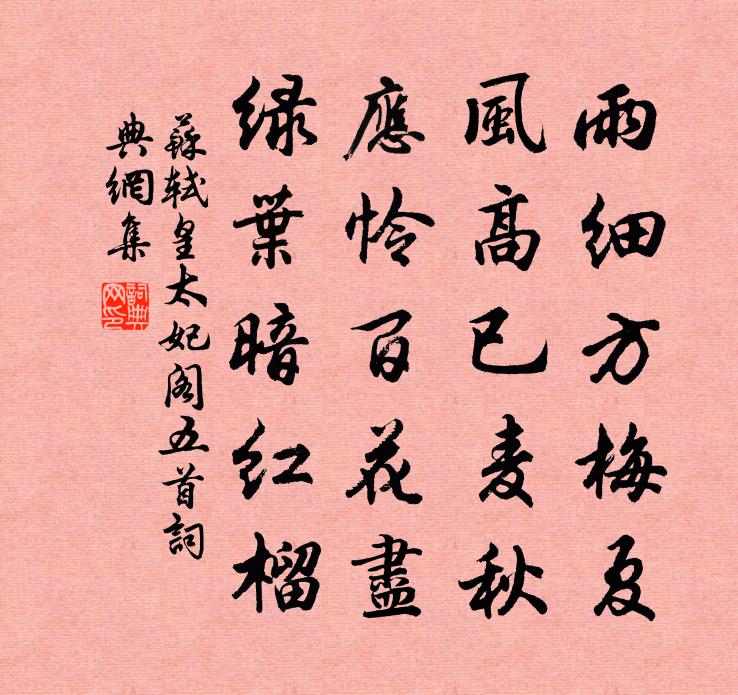 雨细方梅夏
風高已麦秋
應怜百花盡
绿葉暗红榴
蘇軾皇太妃阁五首詞
典網集
詞典网印